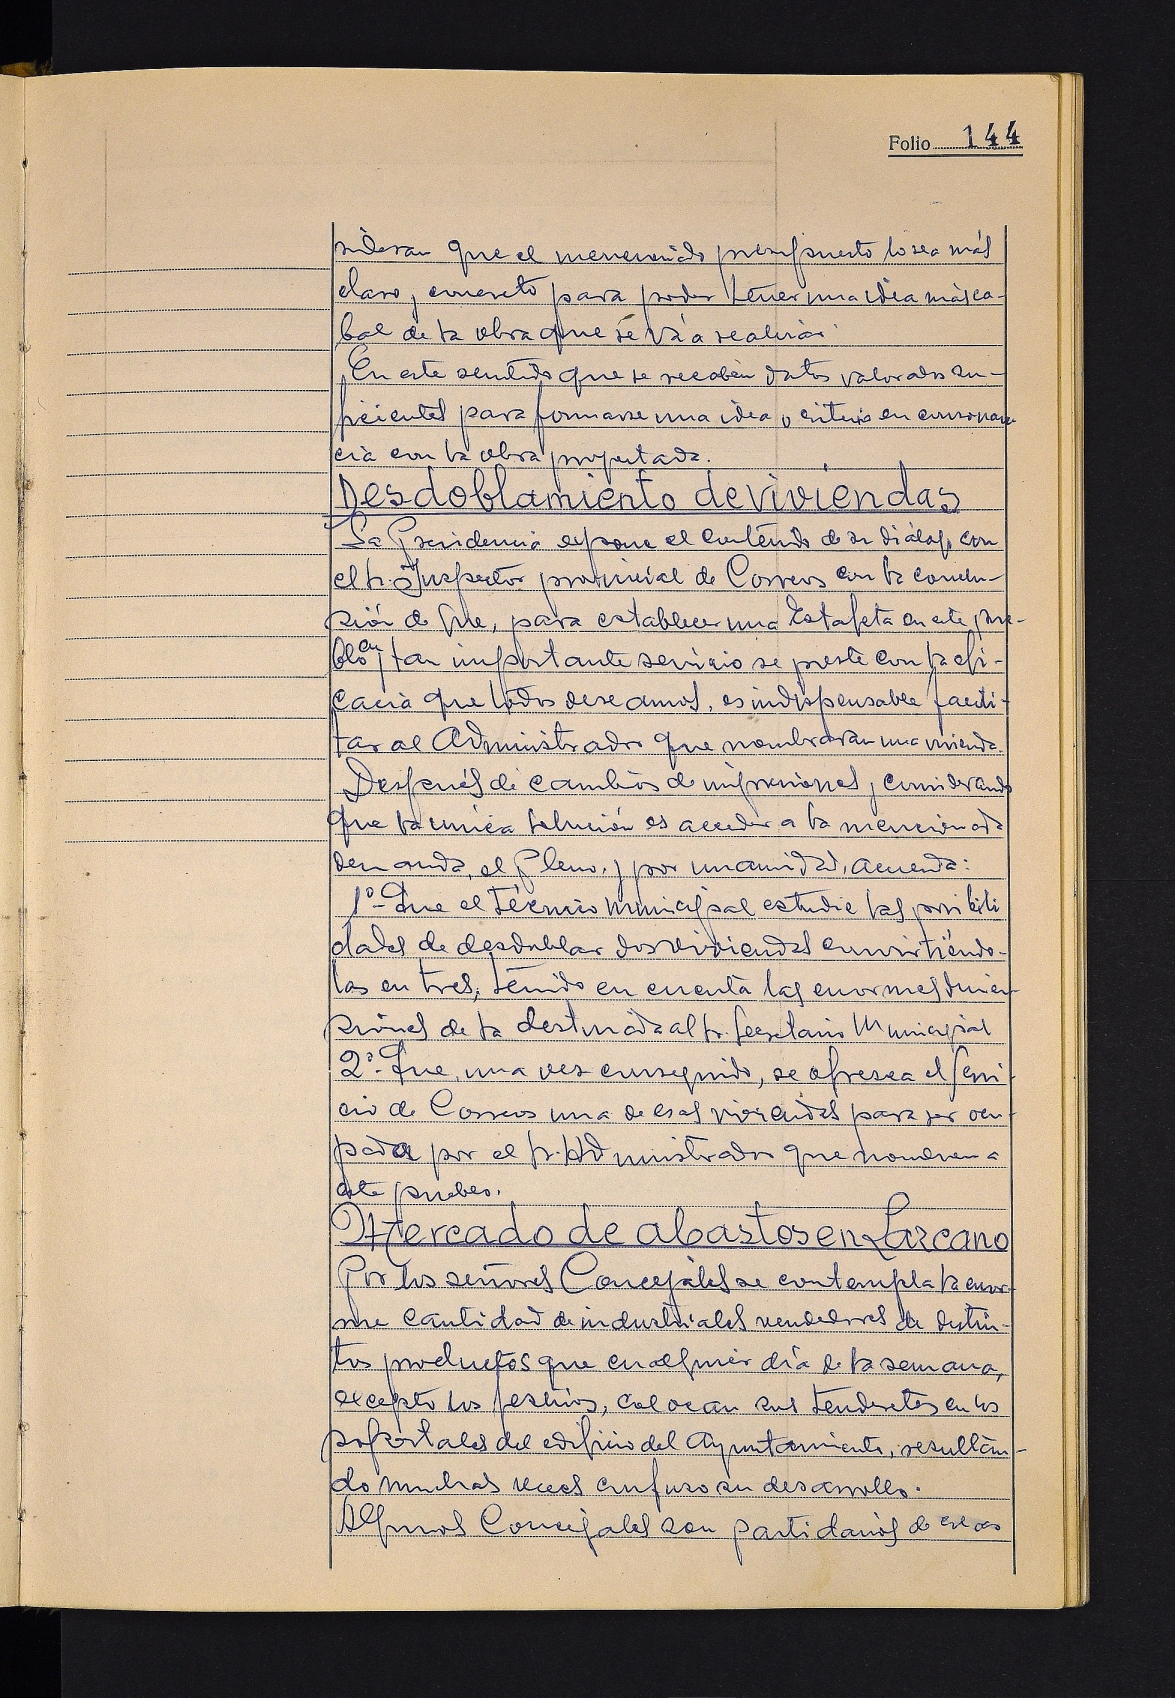 Folio 144
sideran que el mencionado presupuesto lo sea más
claro y concreto para poder tener una idea más ca-
bal de la obra que se vá a realizar.
En este sentido que se recaben datos valorados su-
ficientes para formarse una idea o criterio en consonan-
cia con la obra proyectada.
Desdoblamiento de viviendas
La Presidencia expone el contenido de su diálogo con
el Sr. Inspector provincial de Correos con la conclu-
sión de que, para establecer una Estafeta en este pue-
blo y en tan importante servicio se preste con la efi-
cacia que todos deseamos, es indispensable facili-
tar al Administrador que nombraran una vivienda.
Después de cambios de impresiones y considerando
que la única solución es acceder a la mencionada
demanda, el Pleno, y por unanimidad, acuerda:
1º- Que el Técnico Municipal estudie las posibili
dades de desdoblar dos viviendas convirtiéndo-
las en tres, tenido en cuenta las enormes dimen-
siones de la destinada al Sr. Secretario Municipal
2º- Que, una vez conseguido, se ofrezca al Servi-
cio de Correos una de esas viviendas para ser ocu-
pada por el Sr. Administrador que nombren a
este pueblo.
Mercado de abastos en Lazcano
Por los señores Concejales se contempla la enor-
me cantidad de industriales vendedores de distin-
tos productos que cualquier día de la semana,
excepto los festivos, colocan sus tenderetes en los
soportales del edificio del Ayuntamiento, resultan-
do muchas veces confuso su desarrollo.
Algunos Concejales son partidarios de